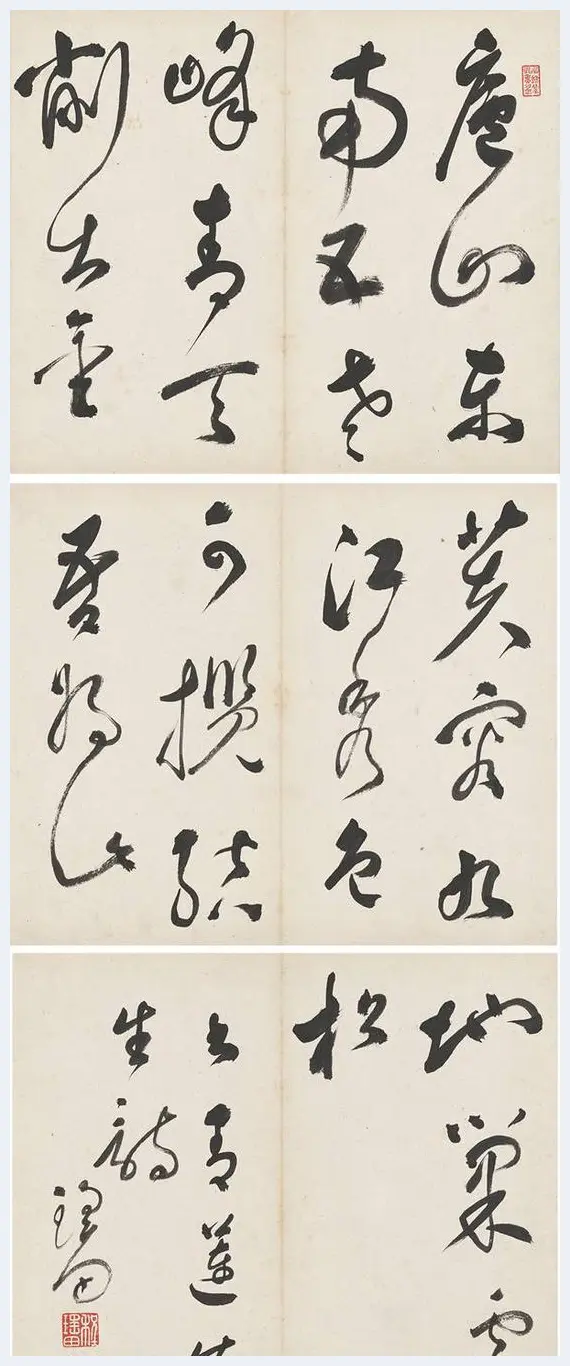 廬山東
南五老
峰青天
削出金
芙容九
江秀色
可攬結
吾將此
地巢雲
松
書青蓮
生詩
瑤田